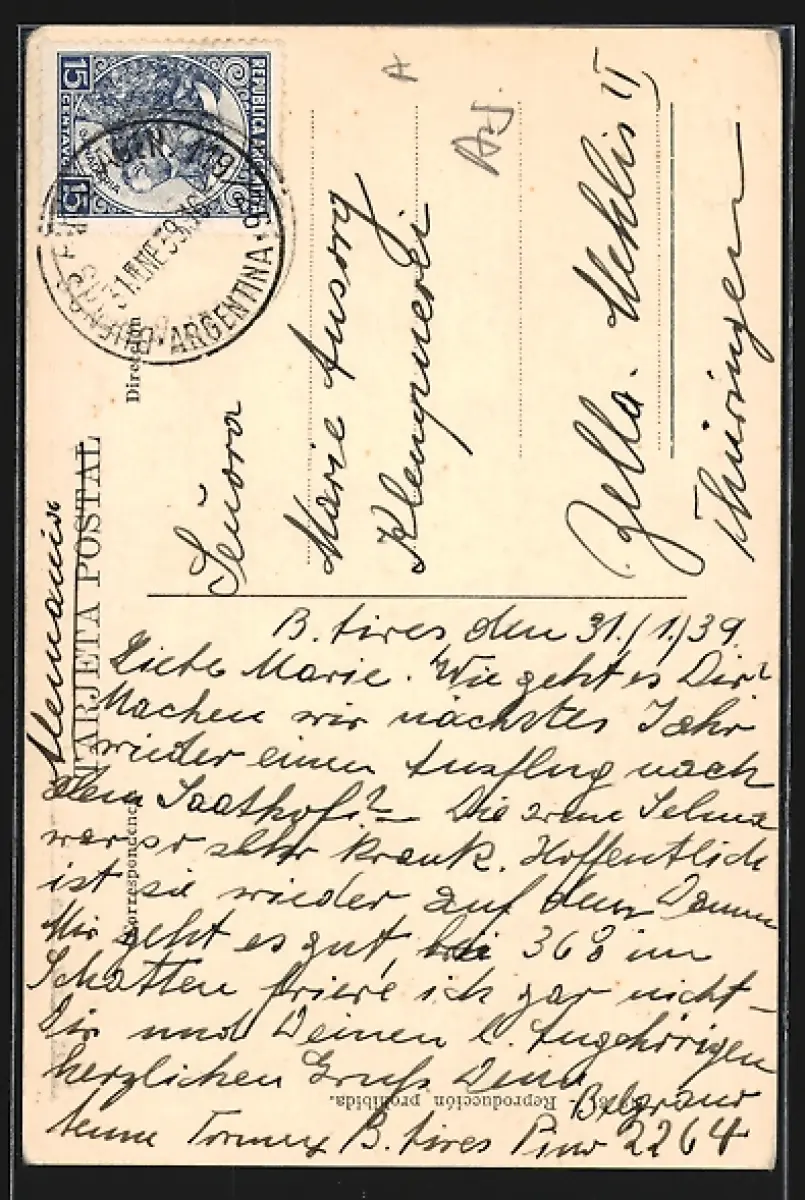 REPUBLICA ARGENTINA
15 CENTAVOS 15
BUENOS AIRES · ARGENTINA ·
31 ENE 39
TARJETA POSTAL
Dirección
Correspondencia
A
Arg.
Señora
Marie Ansorg
Klempnerei
Zella-Mehlis II
Thüringen
Alemania
B. Aires den 31./1./39.
Liebe Marie. Wie geht es Dir?
Machen wir nächstes Jahr
wieder einen Ausflug nach
dem Saathof? — Die arme Selma
war so sehr krank. Hoffentlich
ist sie wieder auf dem Damm
Mir geht es gut, bei 36° im
Schatten friere ich gar nicht —
Dir und Deinen l. Angehörigen
herzlichen Gruß Deine
Anna B. Aires Pino 2264
Belgrano
Reproducción prohibida.